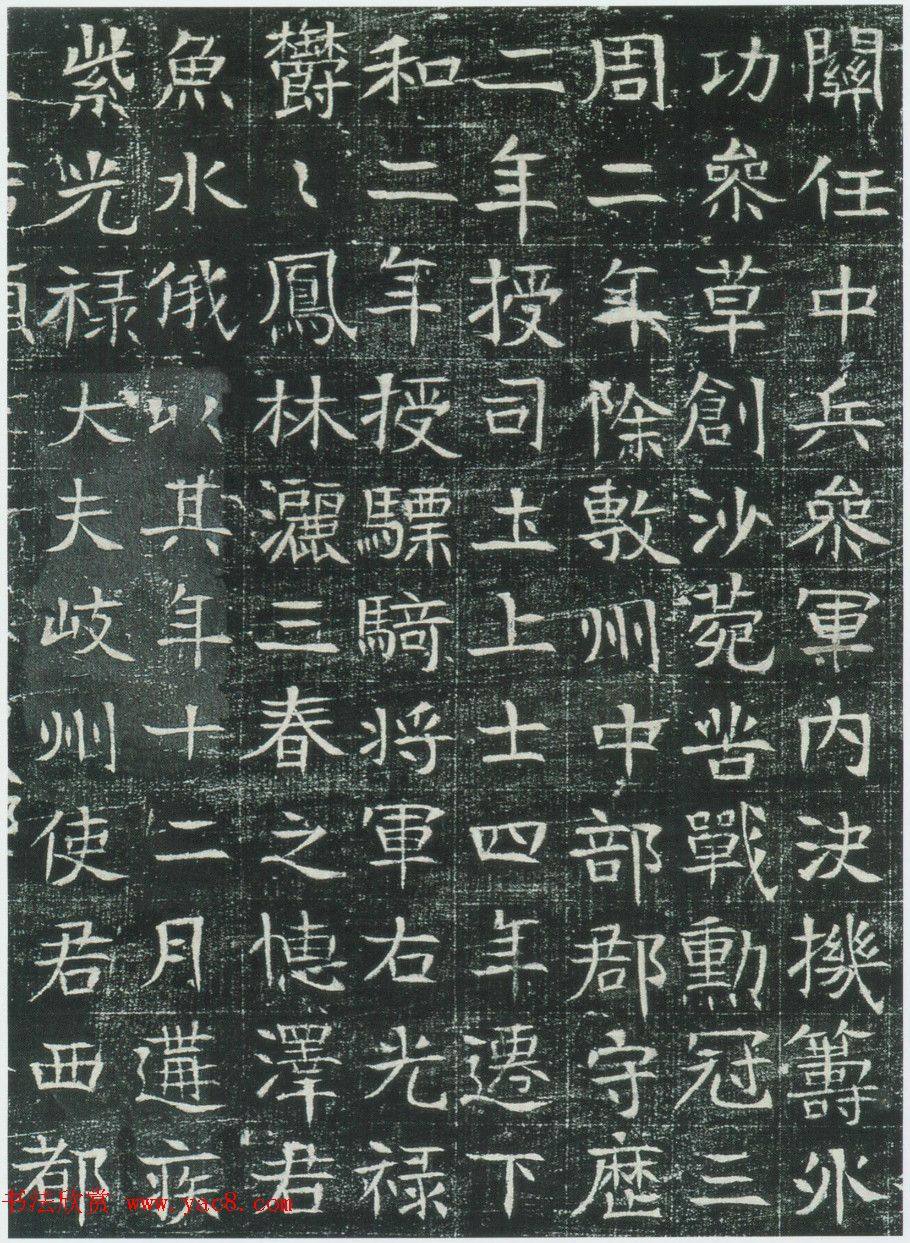 關任中兵叅軍內決機籌
功叅草創沙菀苦戰勳冠三
周二年除敷州中部郡守歷
二年授司土上士四年遷下
和二年授驃騎將軍右光禄
欝〻鳳林灑三春之憓澤君
魚水俄以其年十二月遘疾
紫光禄大夫岐州使君西都
书法欣赏 www.yac8.com